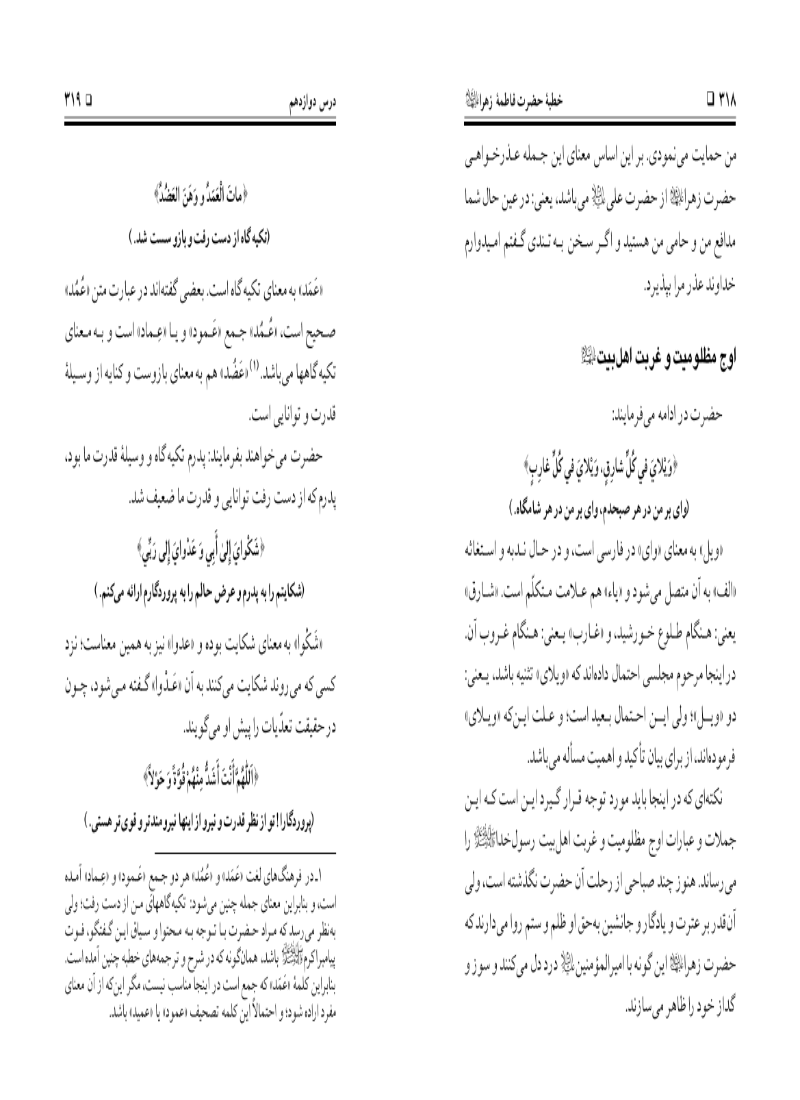 ۳۱۸ ❑ خطبهٔ حضرت فاطمهٔ زهرا
من حمایت می‌نمودی. بر این اساس معنای این جمله عذرخواهی
حضرت زهرا از حضرت علی می‌باشد، یعنی: در عین حال شما
مدافع من و حامی من هستید و اگر سخن به تندی گفتم امیدوارم
خداوند عذر مرا بپذیرد.
اوج مظلومیت و غربت اهل‌بیت
حضرت در ادامه می‌فرمایند:
﴿وَیْلایَ في کُلِّ شارِقٍ، وَیْلايَ في کُلِّ غارِبٍ﴾
(وای بر من در هر صبحدم، وای بر من در هر شامگاه.)
«ویل» به معنای «وای» در فارسی است، و در حال ندبه و استغاثه
«الف» به آن متصل می‌شود و «یاء» هم علامت متکلّم است. «شارق»
یعنی: هنگام طلوع خورشید، و «غارب» یعنی: هنگام غروب آن.
در اینجا مرحوم مجلسی احتمال داده‌اند که «ویلای» تثنیه باشد، یعنی:
دو «ویل»؛ ولی این احتمال بعید است؛ و علت این‌که «ویلای»
فرموده‌اند، از برای بیان تأکید و اهمیت مسأله می‌باشد.
نکته‌ای که در اینجا باید مورد توجه قرار گیرد این است که این
جملات و عبارات اوج مظلومیت و غربت اهل‌بیت رسول‌خدا را
می‌رساند. هنوز چند صباحی از رحلت آن حضرت نگذشته است، ولی
آن‌قدر بر عترت و یادگار و جانشین به‌حق او ظلم و ستم روا می‌دارند که
حضرت زهرا این گونه با امیرالمؤمنین درد دل می‌کنند و سوز و
گداز خود را ظاهر می‌سازند.
درس دوازدهم ❑ ۳۱۹
﴿ماتَ الْعَمَدُ و وَهَنَ العَضُدُ﴾
(تکیه گاه از دست رفت و بازو سست شد.)
«عَمَد» به معنای تکیه گاه است. بعضی گفته‌اند در عبارت متن «عُمُد»
صحیح است، «عُمُد» جمع «عَمود» و یا «عِماد» است و به معنای
تکیه گاهها می‌باشد.(۱) «عَضُد» هم به معنای بازوست و کنایه از وسیلهٔ
قدرت و توانایی است.
حضرت می‌خواهند بفرمایند: پدرم تکیه گاه و وسیلهٔ قدرت ما بود،
پدرم که از دست رفت توانایی و قدرت ما ضعیف شد.
﴿شَکْوايَ إلیٰ أَبي وَ عَدْوايَ إلی رَبّي﴾
(شکایتم را به پدرم و عرض حالم را به پروردگارم ارائه می‌کنم.)
«شَکْوا» به معنای شکایت بوده و «عدوا» نیز به همین معناست؛ نزد
کسی که می‌روند شکایت می‌کنند به آن «عَدْوا» گفته می‌شود، چون
در حقیقت تعدّیات را پیش او می‌گویند.
﴿اَللّٰهُمَّ أَنْتَ أَشَدُّ مِنْهُمْ قُوَّةً وَ حَوْلاً﴾
(پروردگارا! تو از نظر قدرت و نیرو از اینها نیرومندتر و قوی‌تر هستی.)
۱ـ در فرهنگ‌های لغت «عَمَد» و «عُمُد» هر دو جمع «عَمود» و «عِماد» آمده
است، و بنابراین معنای جمله چنین می‌شود: تکیه‌گاههای من از دست رفت؛ ولی
به‌نظر می‌رسد که مراد حضرت با توجه به محتوا و سیاق این گفتگو، فوت
پیامبراکرم باشد، همان‌گونه که در شرح و ترجمه‌های خطبه چنین آمده است.
بنابراین کلمهٔ «عَمَد» که جمع است در اینجا مناسب نیست، مگر این‌که از آن معنای
مفرد اراده شود؛ و احتمالاً این کلمه تصحیف «عمود» یا «عمید» باشد.